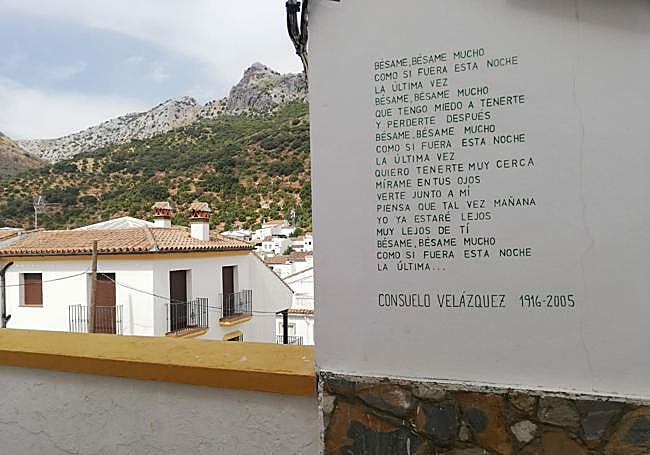 BÉSAME, BÉSAME MUCHO
COMO SI FUERA ESTA NOCHE
LA ÚLTIMA VEZ
BÉSAME, BÉSAME MUCHO
QUE TENGO MIEDO A TENERTE
Y PERDERTE DESPUÉS
BÉSAME, BÉSAME MUCHO
COMO SI FUERA ESTA NOCHE
LA ÚLTIMA VEZ
QUIERO TENERTE MUY CERCA
MÍRAME EN TUS OJOS
VERTE JUNTO A MÍ
PIENSA QUE TAL VEZ MAÑANA
YO YA ESTARÉ LEJOS
MUY LEJOS DE TÍ
BÉSAME, BÉSAME MUCHO
COMO SI FUERA ESTA NOCHE
LA ÚLTIMA...
CONSUELO VELÁZQUEZ 1916-2005